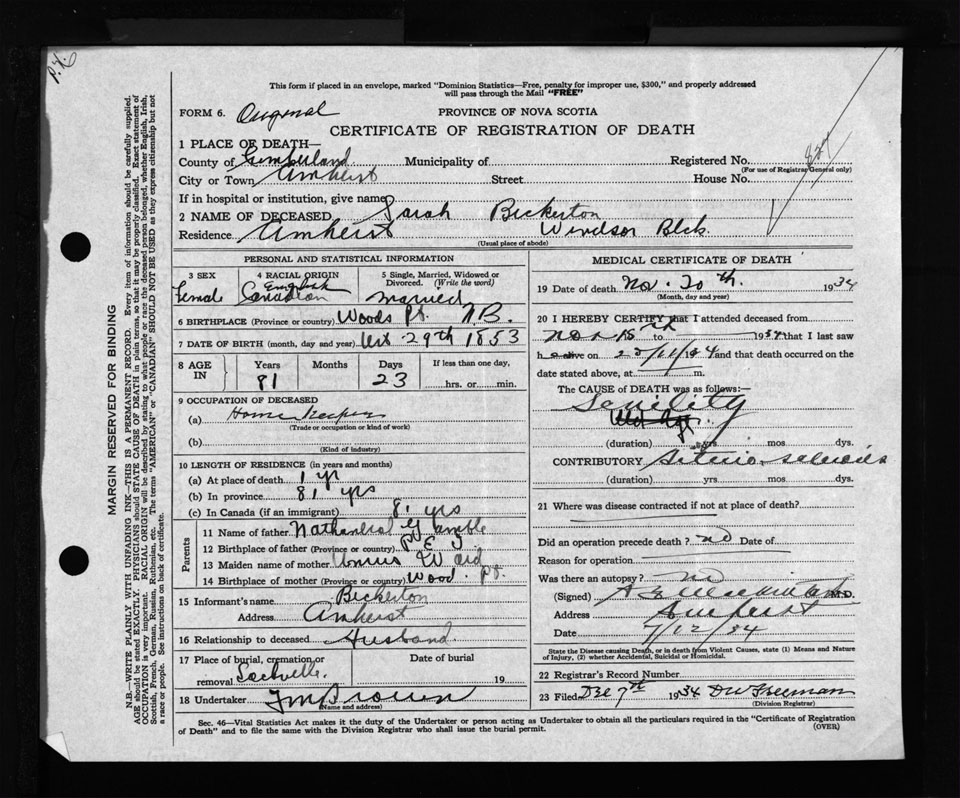 P.X.
This form if placed in an envelope, marked "Dominion Statistics—Free, penalty for improper use, $300," and properly addressed
will pass through the Mail "FREE"
FORM 6. Original
PROVINCE OF NOVA SCOTIA
CERTIFICATE OF REGISTRATION OF DEATH
1 PLACE OF DEATH—
County of Cumberland Municipality of Registered No.
(For use of Registrar General only)
City or Town Amherst Street House No.
If in hospital or institution, give name
2 NAME OF DECEASED Sarah Bickerton
Residence Amherst Windsor Blck.
(Usual place of abode)
PERSONAL AND STATISTICAL INFORMATION
3 SEX
Female
4 RACIAL ORIGIN
English
Canadian
5 Single, Married, Widowed or
Divorced. (Write the word)
Married
6 BIRTHPLACE (Province or country) Woods Pt. N.B.
7 DATE OF BIRTH (month, day and year) Oct 29th 1853
8 AGE
IN
Years
81
Months
Days
23
If less than one day,
hrs. or min.
9 OCCUPATION OF DECEASED
(a) Home Keeper
(Trade or occupation or kind of work)
(b)
(Kind of industry)
10 LENGTH OF RESIDENCE (in years and months)
(a) At place of death 1 yr
(b) In province 81 yrs
(c) In Canada (if an immigrant) 81 yrs
Parents
11 Name of father Nathaniel Gamble
12 Birthplace of father (Province or country) P E I
13 Maiden name of mother Ward
14 Birthplace of mother (Province or country) Wood. Pt.
15 Informant's name Bickerton
Address Amherst
16 Relationship to deceased Husband
17 Place of burial, cremation or
removal Sackville.
Date of burial
19
18 Undertaker Brown
(Name and address)
MEDICAL CERTIFICATE OF DEATH
19 Date of death Nov. 20th. 1934
(Month, day and year)
20 I HEREBY CERTIFY that I attended deceased from
Nov 15th to 1934 that I last saw
h alive on /11/34 and that death occurred on the
date stated above, at m.
The CAUSE of DEATH was as follows:—
Senility
(duration) yrs mos dys.
CONTRIBUTORY Arterio sclerosis
(duration) yrs. mos dys.
21 Where was disease contracted if not at place of death?
Did an operation precede death? no Date of
Reason for operation
Was there an autopsy? no
(Signed) M.D.
Address Amherst
Date 7/12/34
State the Disease causing Death, or in death from Violent Causes, state (1) Means and Nature
of Injury, (2) whether Accidental, Suicidal or Homicidal.
22 Registrar's Record Number
23 Filed Dec 7th 1934 D W Freeman
(Division Registrar)
Sec. 46—Vital Statistics Act makes it the duty of the Undertaker or person acting as Undertaker to obtain all the particulars required in the "Certificate of Registration
of Death" and to file the same with the Division Registrar who shall issue the burial permit.
(OVER)
MARGIN RESERVED FOR BINDING
N.B.—WRITE PLAINLY WITH UNFADING INK—THIS IS A PERMANENT RECORD. Every item of information should be carefully supplied.
AGE should be stated EXACTLY. PHYSICIANS should STATE CAUSE OF DEATH in plain terms, so that it may be properly classified. Exact statement of
OCCUPATION is very important. RACIAL ORIGIN will be described by stating to what people or race the deceased person belonged, whether English, Irish,
Scottish, French, German, Russian, Ruthenian, etc. The terms "AMERICAN" or "CANADIAN" SHOULD NOT BE USED as they express citizenship but not
a race or people. See instructions on back of certificate.